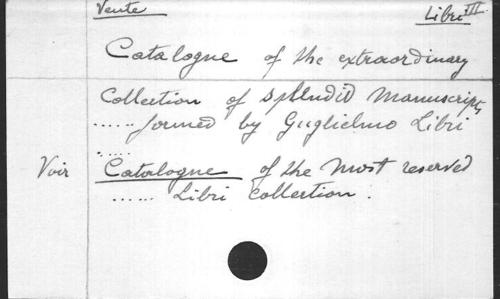 Vente Libri III
Catalogue of the extraordinary
Collection of splendid Manuscripts
...... formed by Guglielmo Libri
......
Voir Catalogue of the most reserved
...... Libri collection.